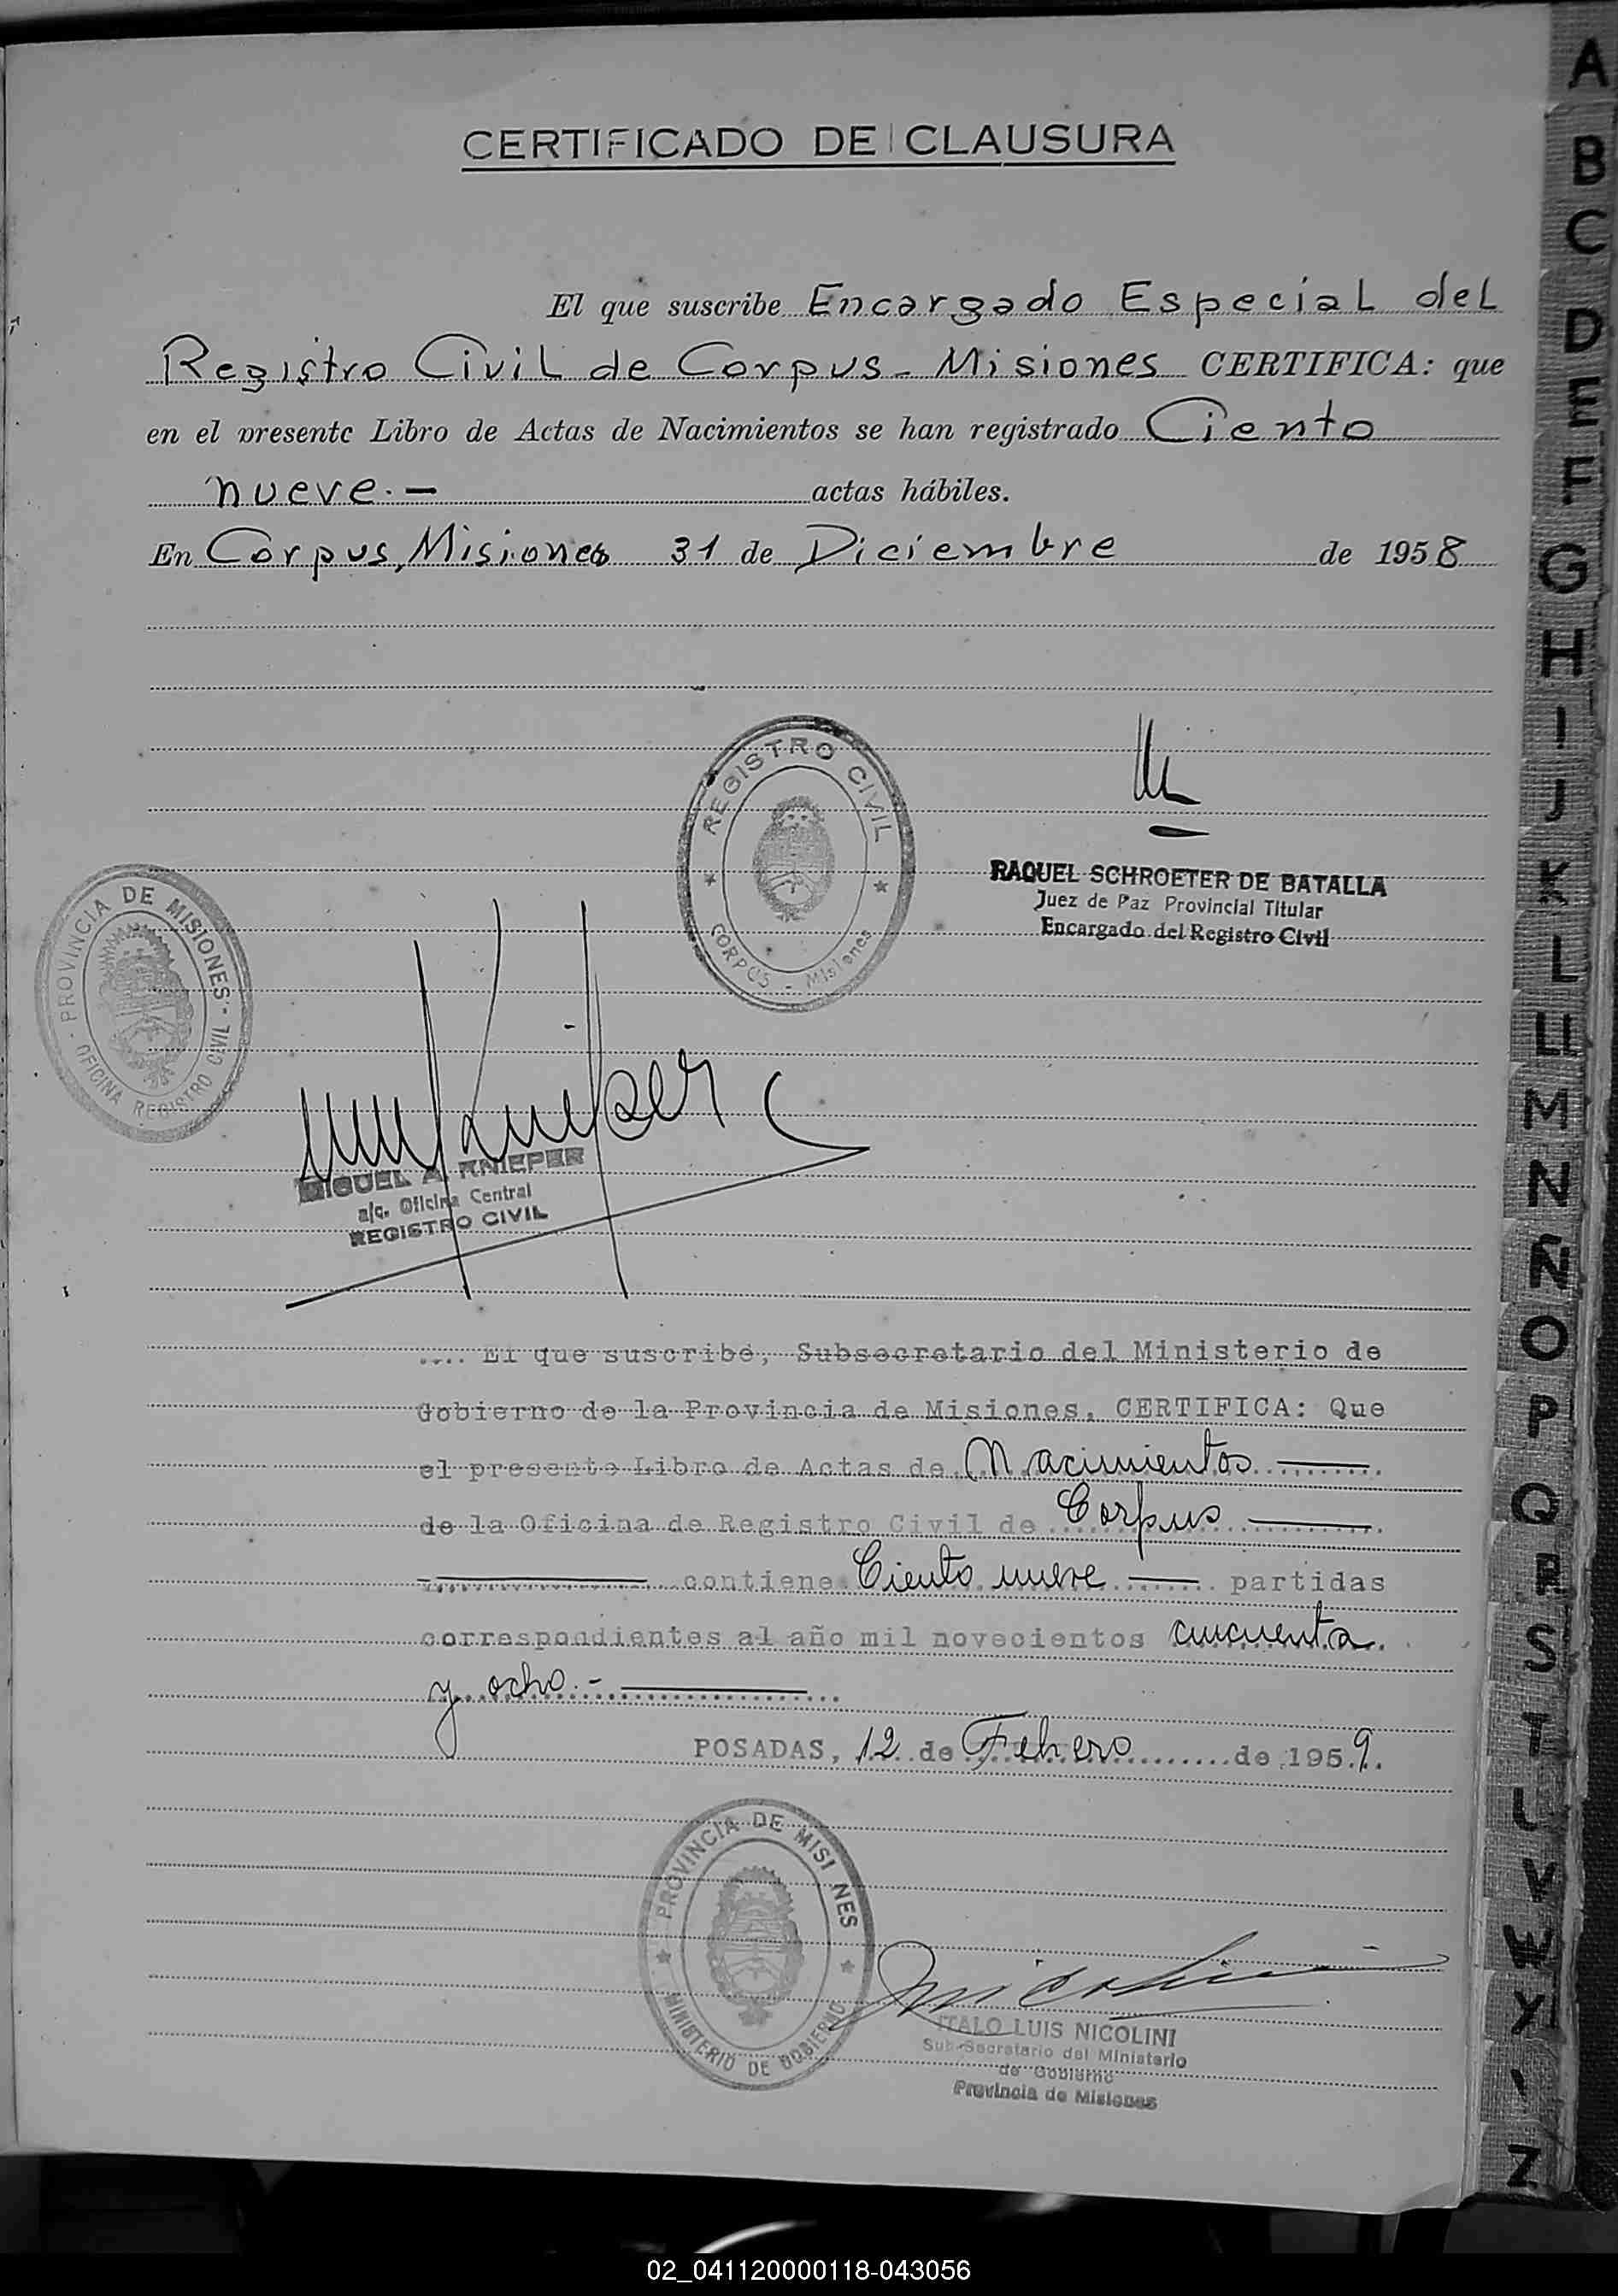 CERTIFICADO DE CLAUSURA
El que suscribe Encargado Especial del
Registro Civil de Corpus - Misiones CERTIFICA: que
en el presente Libro de Actas de Nacimientos se han registrado Ciento
nueve.- actas hábiles.
En Corpus, Misiones 31 de Diciembre de 1958
REGISTRO CIVIL
CORPUS - Misiones
RAQUEL SCHROETER DE BATALLA
Juez de Paz Provincial Titular
Encargado del Registro Civil
PROVINCIA DE MISIONES
OFICINA REGISTRO CIVIL
MIGUEL A. KNIEPER
a/c. Oficina Central
REGISTRO CIVIL
.... El que suscribe, Subsecretario del Ministerio de
Gobierno de la Provincia de Misiones, CERTIFICA: Que
el presente Libro de Actas de Nacimientos
de la Oficina de Registro Civil de Corpus
contiene Ciento nueve partidas
correspondientes al año mil novecientos cincuenta
y ocho.-
POSADAS, 12 de Febrero de 1959.
PROVINCIA DE MISI NES
MINISTERIO DE GOBIERNO
Nicolini
ITALO LUIS NICOLINI
Sub-Secretario del Ministerio
de Gobierno
Provincia de Misiones
A
B
C
D
E
F
G
H
I
J
K
L
LL
M
N
Ñ
O
P
Q
R
S
T
V
Y
Z
02_041120000118-043056